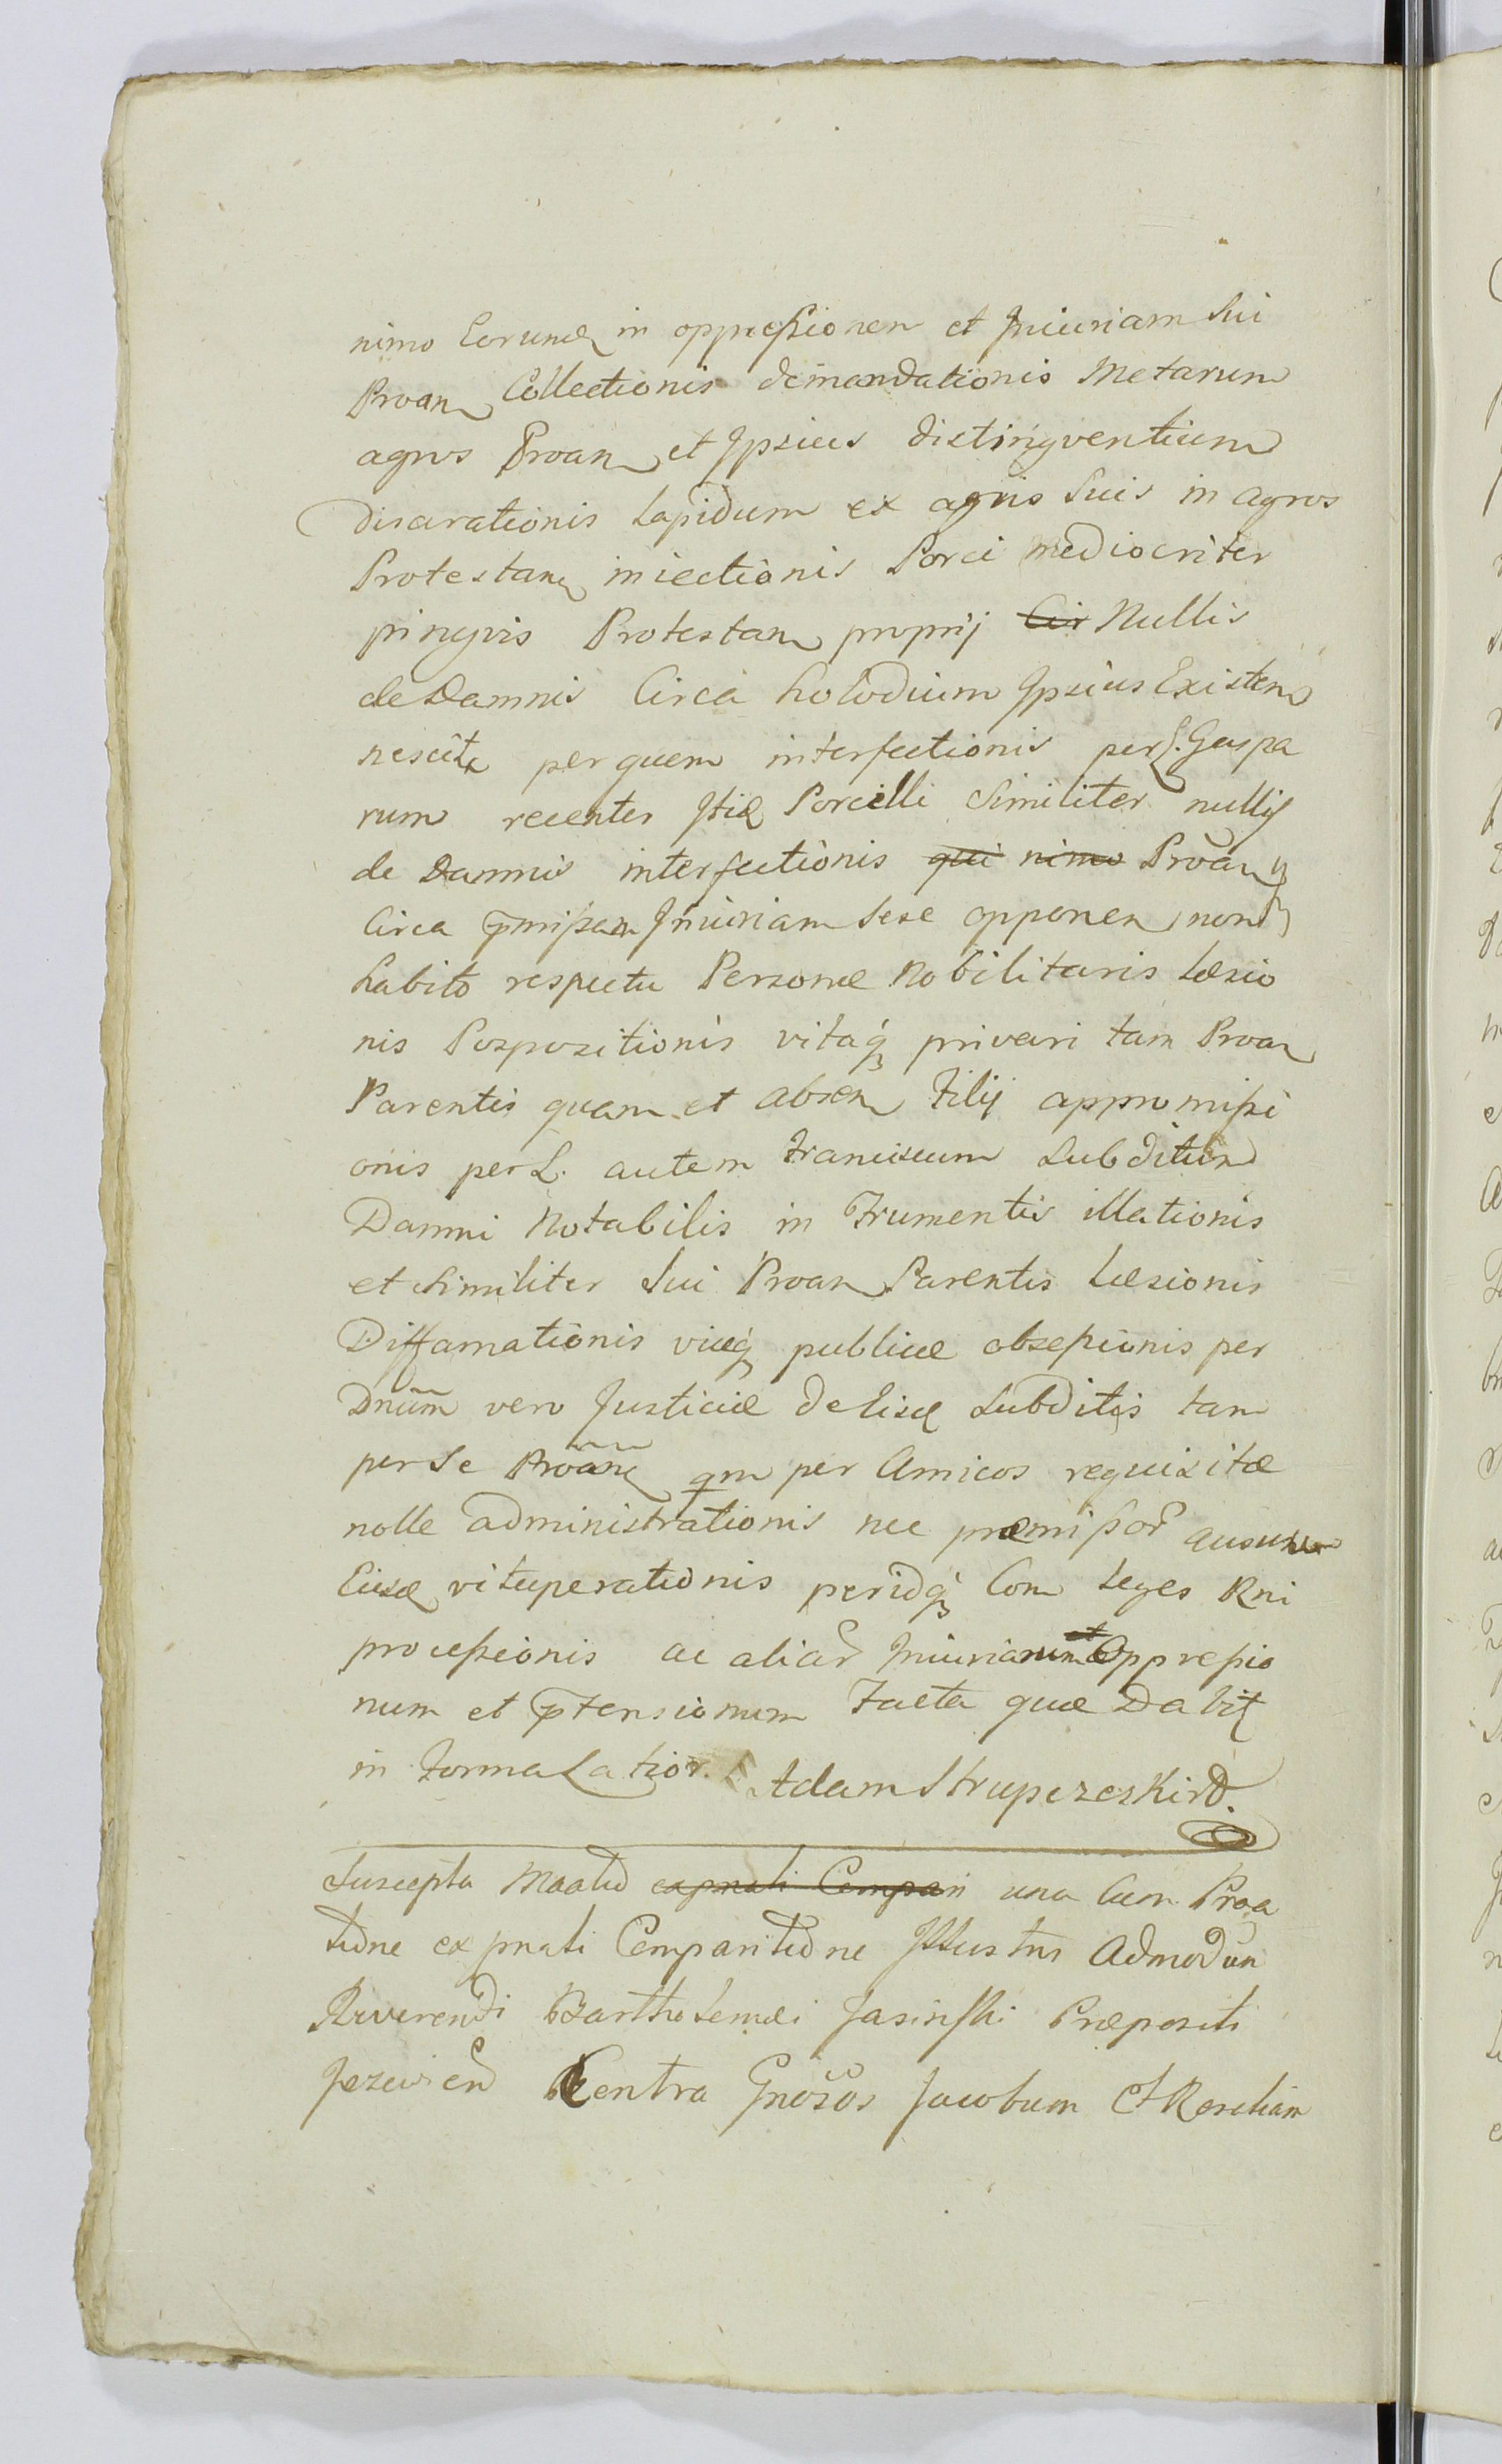 nimo Eorund in oppressionem et Iniuriam Sui
Proan Collectionis demandationis Metarum
agros Proan et Ipsius distingventium
Disarationis Lapidum ex agris Suis in agros
Protestan iniectionis Porci mediocriter
pingvis Protestan proprij Cir Nullis
de Damnis Circa Lolodium Ipsius Existen
nescit per quem interfectionis per L. Gaspa
rum recenter Itid Porcelli Similiter nullis
de Damnis interfectionis qui nimo Proan
Circa pmissam Iniuriam Sese opponen non
habito respectu Personæ Nobilitaris Læsio
nis Pospositionis vitaq privari tam Proan
Parentis quam et absen Filij appromissi
onis per L. autem Franciscum Subditum
Damni Notabilis in Frumentis illationis
et Similiter Sui Proan Parentis Læsionis
Diffamationis viæq publicæ obsessionis per
Dnum vero Justiciæ de Subditis tam
per Se Proan qm per Amicos requisitæ
nolle administrationis nec præmissor ausum
Eiusd vituperationis peridq Con Leges Rni
processionis ac aliar Iniuriarum et Oppressio
num et ptensionum Facta quæ Dabit
in Forma Latior. Adam Strupczeski
Suscepta Maatio exprnati Compari una Cum Proa
tione ex prnati Comparitione Illustris Admodum
Reverendi Bartholemæi Jasinski Præpositi
Jezewien Contra Gnosos Jacobum et